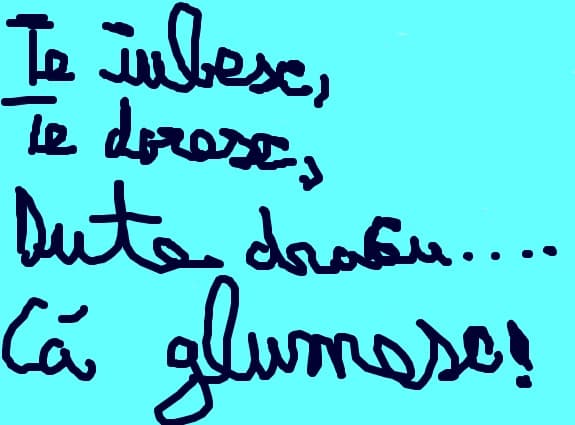 Te iubesc,
Te doresc,
Dute dracu....
Că glumesc!